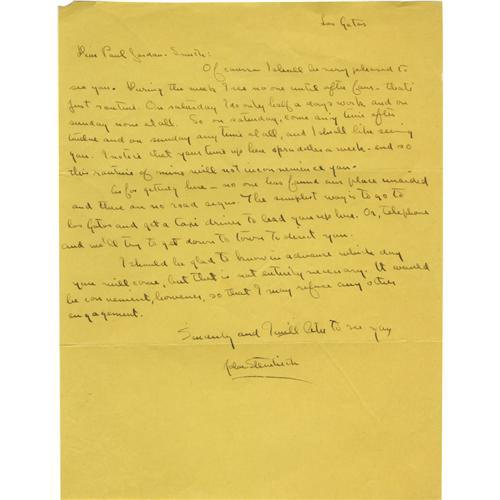 Los Gatos
Dear Paul Jordan-Smith:
Of course I shall be very pleased to
see you. During the week I see no one until after four. that's
just routine. On saturday I do only half a days work and on
sunday none at all. So on saturday, come any time after
twelve and on sunday any time at all, and I shall like seeing
you. I notice that your time up here spans a week-end so
this routine of mine will not inconvenience you.
As for getting here - no one has found our place unaided
and there are no road signs. The simplest way is to go to
Los Gatos and get a taxi driver to lead you up here. Or, telephone
and we'll try to get down to town to direct you.
I should be glad to know in advance which day
you will come, but that is not entirely necessary. It would
be convenient, however, so that I may refuse any other
engagement.
Sincerely and I will like to see you
John Steinbeck